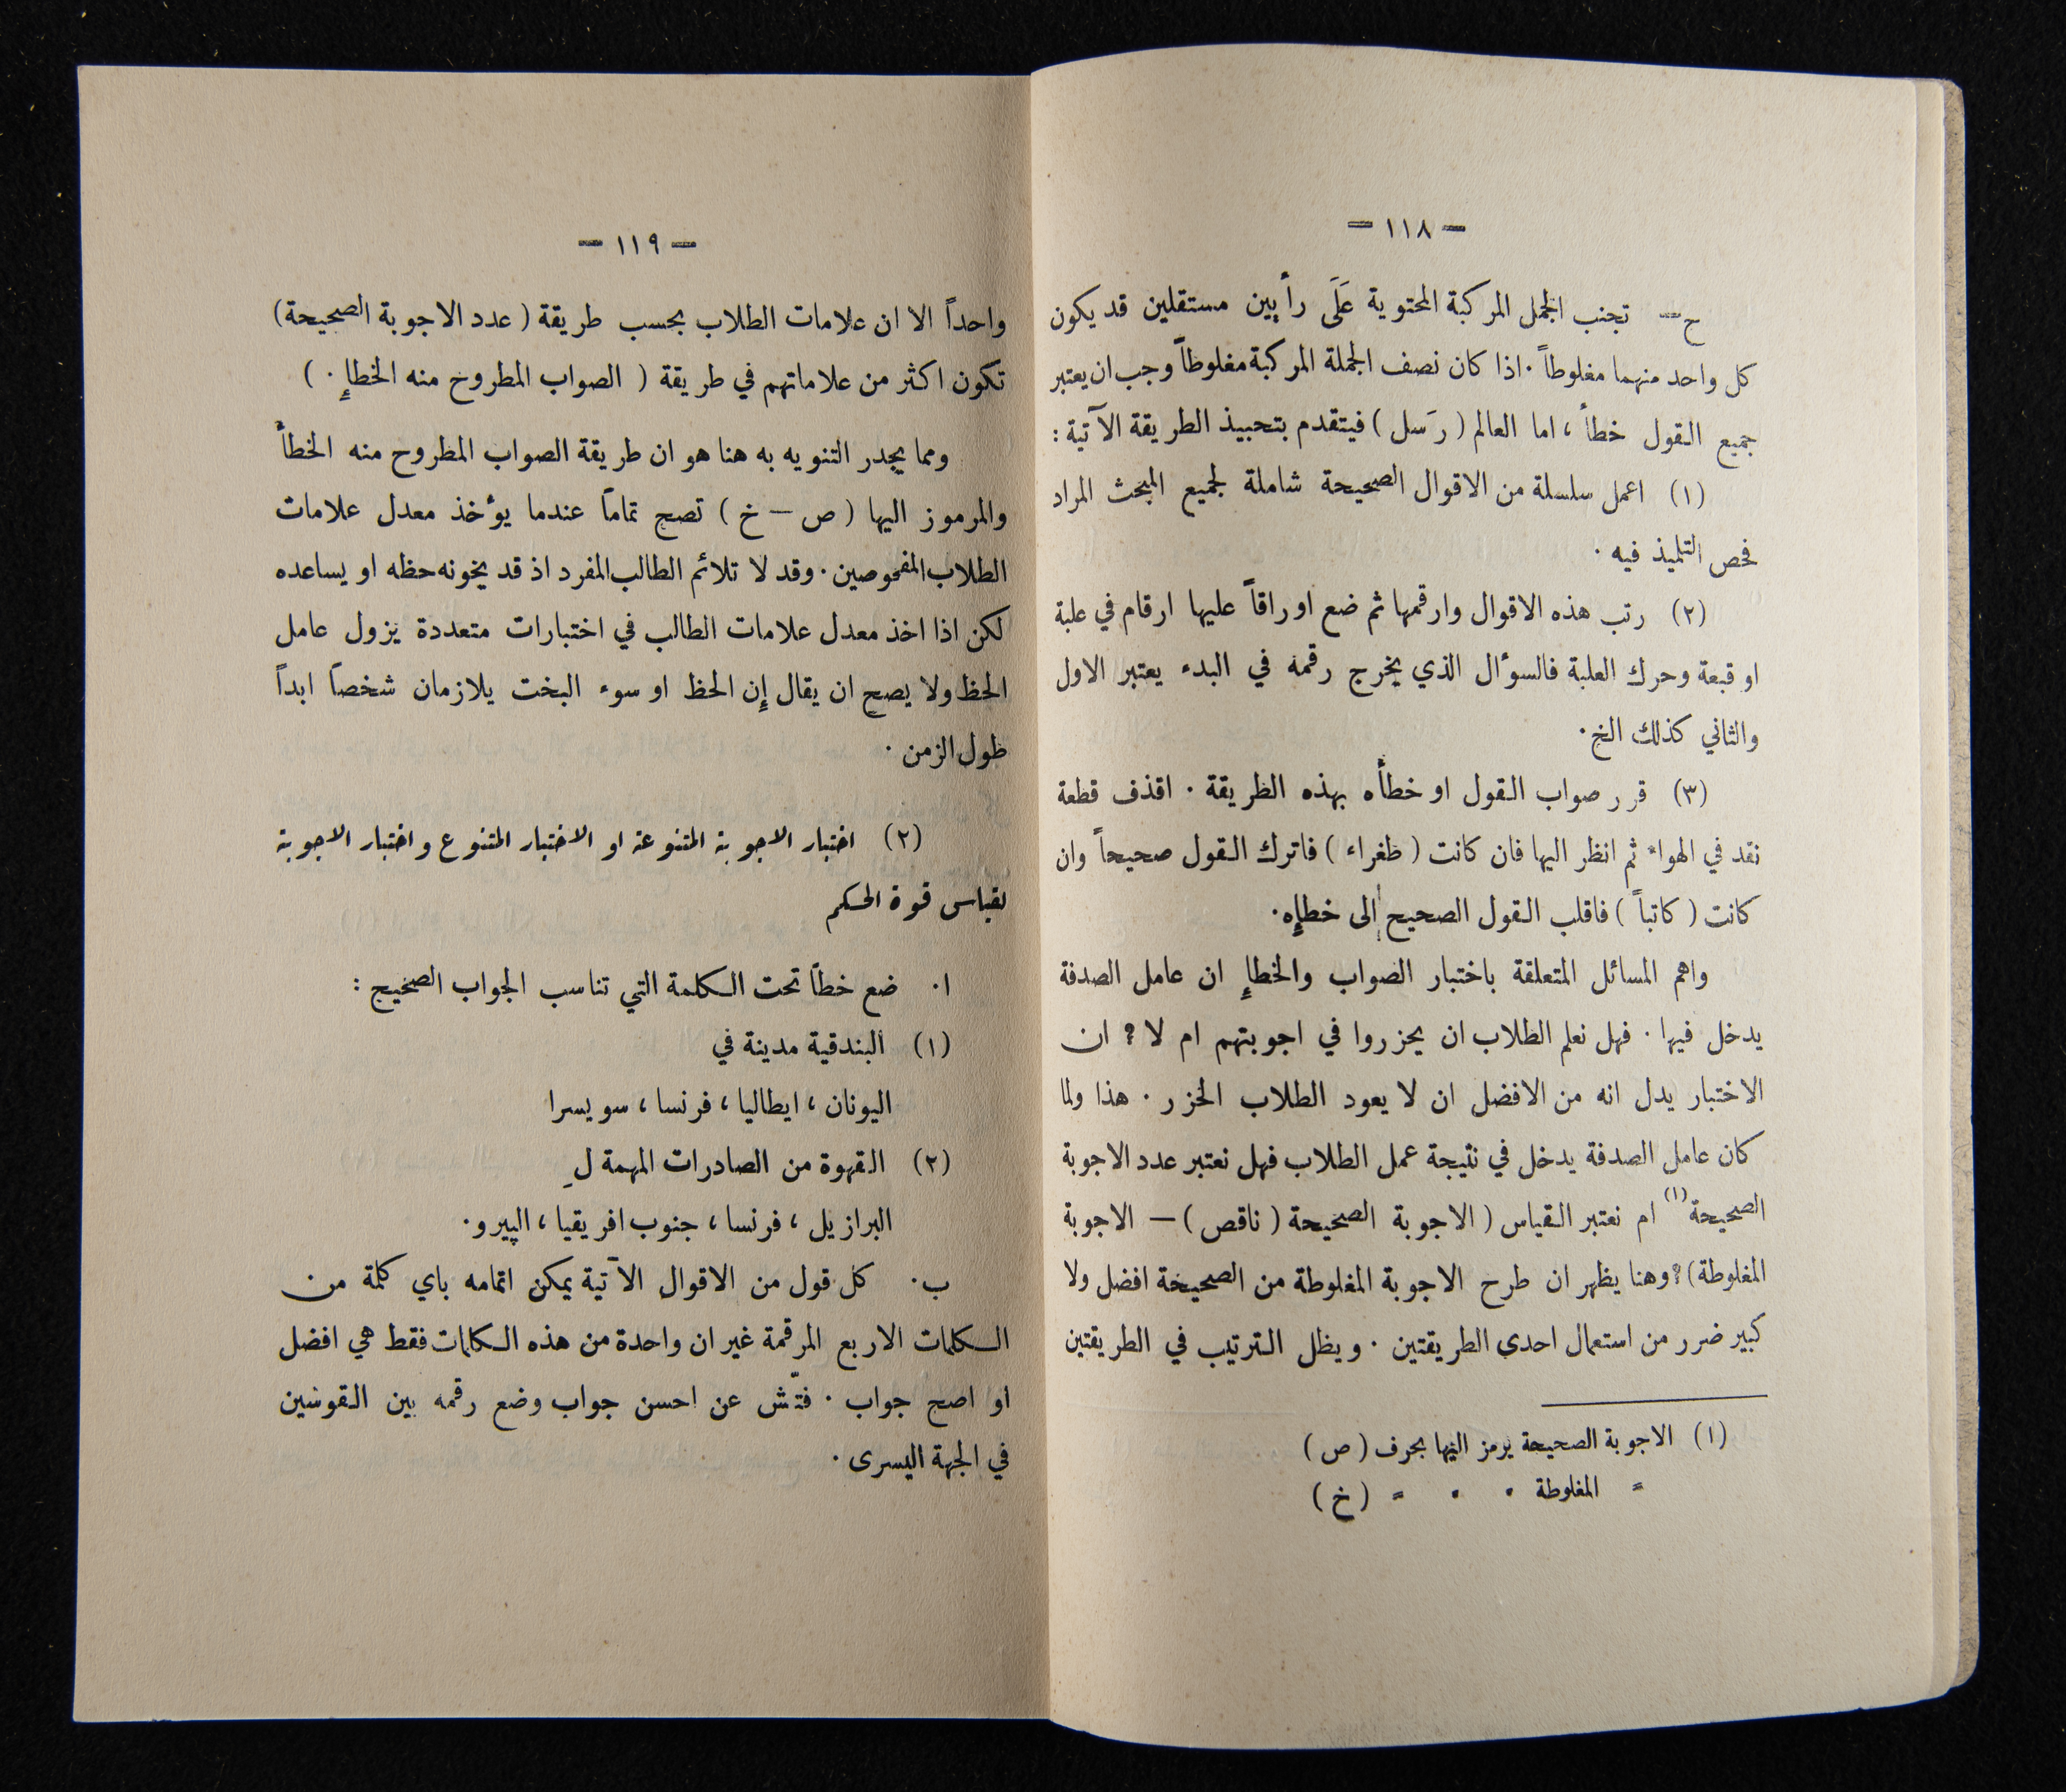 — ١١٨ —
ح — تجنب الجمل المركبة المحتوية عَلَى رأيين مستقلين قد يكون
كل واحد منهما مغلوطاً . اذا كان نصف الجملة المركبة مغلوطاً وجب ان يعتبر
جميع القول خطأ ، اما العالم ( رَسل ) فيتقدم بتحبيذ الطريقة الآتية :
(١) اعمل سلسلة من الاقوال الصحيحة شاملة لجميع المبحث المراد
فحص التلميذ فيه .
(٢) رتب هذه الاقوال وارقمها ثم ضع اوراقاً عليها ارقام في علبة
او قبعة وحرك العلبة فالسوأل الذي يخرج رقمه في البدء يعتبر الاول
والثاني كذلك الخ .
(٣) قرر صواب القول او خطأه بهذه الطريقة . اقذف قطعة
نقد في الهواء ثم انظر اليها فان كانت ( طغراء ) فاترك القول صحيحاً وان
كانت ( كاتباً ) فاقلب القول الصحيح إلى خطإه .
واهم المسائل المتعلقة باختبار الصواب والخطإ ان عامل الصدفة
يدخل فيها . فهل نعلم الطلاب ان يحزروا في اجوبتهم ام لا ? ان
الاختبار يدل انه من الافضل ان لا يعود الطلاب الحزر . هذا ولما
كان عامل الصدفة يدخل في نتيجة عمل الطلاب فهل نعتبر عدد الاجوبة
الصحيحة (١) ام نعتبر القياس ( الاجوبة الصحيحة ( ناقص ) — الاجوبة
المغلوطة ) ? وهنا يظهر ان طرح الاجوبة المغلوطة من الصحيحة افضل ولا
كبير ضرر من استعمال احدى الطريقتين . ويظل الترتيب في الطريقتين
(١) الاجوبة الصحيحة يرمز اليها بحرف ( ص )
" المغلوطة " " " ( خ )
— ١١٩ —
واحداً الا ان علامات الطلاب بحسب طريقة ( عدد الاجوبة الصحيحة )
تكون اكثر من علاماتهم في طريقة ( الصواب المطروح منه الخطإ . )
ومما يجدر التنويه به هنا هو ان طريقة الصواب المطروح منه الخطأ
والمرموز اليها ( ص — خ ) تصح تماماً عندما يؤخذ معدل علامات
الطلاب المفحوصين . وقد لا تلائم الطالب المفرد اذ قد يخونه حظه او يساعده
لكن اذا اخذ معدل علامات الطالب في اختبارات متعددة يزول عامل
الحظ ولا يصح ان يقال إن الحظ او سوء البخت يلازمان شخصاً ابداً
طول الزمن .
(٢) اختبار الاجوبة المتنوعة او الاختبار المتنوع واختبار الاجوبة
لقياس قوة الحكم
ا . ضع خطاً تحت الكلمة التي تناسب الجواب الصحيح :
(١) البندقية مدينة في
اليونان ، ايطاليا ، فرنسا ، سويسرا
(٢) القهوة من الصادرات المهمة لِ
البرازيل ، فرنسا ، جنوب افريقيا ، الپيرو .
ب . كل قول من الاقوال الآتية يمكن اتمامه باي كلمة من
الكلمات الاربع المرقمة غير ان واحدة من هذه الكلمات فقط هي افضل
او اصح جواب . فتّش عن احسن جواب وضع رقمه بين القوسين
في الجهة اليسرى .